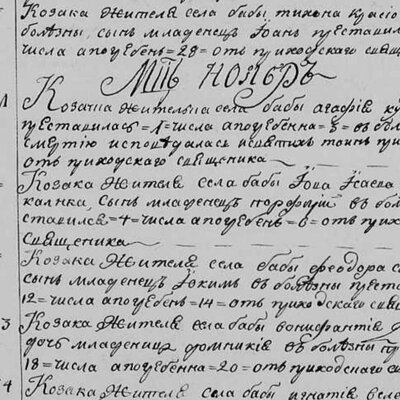 Козака жителя села бабы тихона красіо
болѣзны, сынъ младенецъ Їоанъ преставил
числа апогребенъ = 28 = отъ приходскаго свящ
Мцъ Ноябръ
Козачка жителька села бабы агафія ку
преставилась = 1 = числа апогребенна = 3 = въ бол
смертію исповѣдалась исвятихъ таинъ при
отъ приходскаго священика
Козака жителя села бабы Їова Їсаева
калнка, сынъ младенецъ порфирій въ бол
ставился = 4 = числа апогребенъ = 6 = отъ прихо
священика
Козака жителя села бабы феодора с
сынъ младенецъ Їокимъ въ болѣзны прест
12 = числа апогребенъ = 14 = отъ приходскаго свящ
3 Козака жителя села бабы вонифантія
дочъ младеница домникія въ болѣзны п
18 = числа апогребенна = 20 = отъ приходскаго свяще
4 Козака жителя села бабы игнатія веле